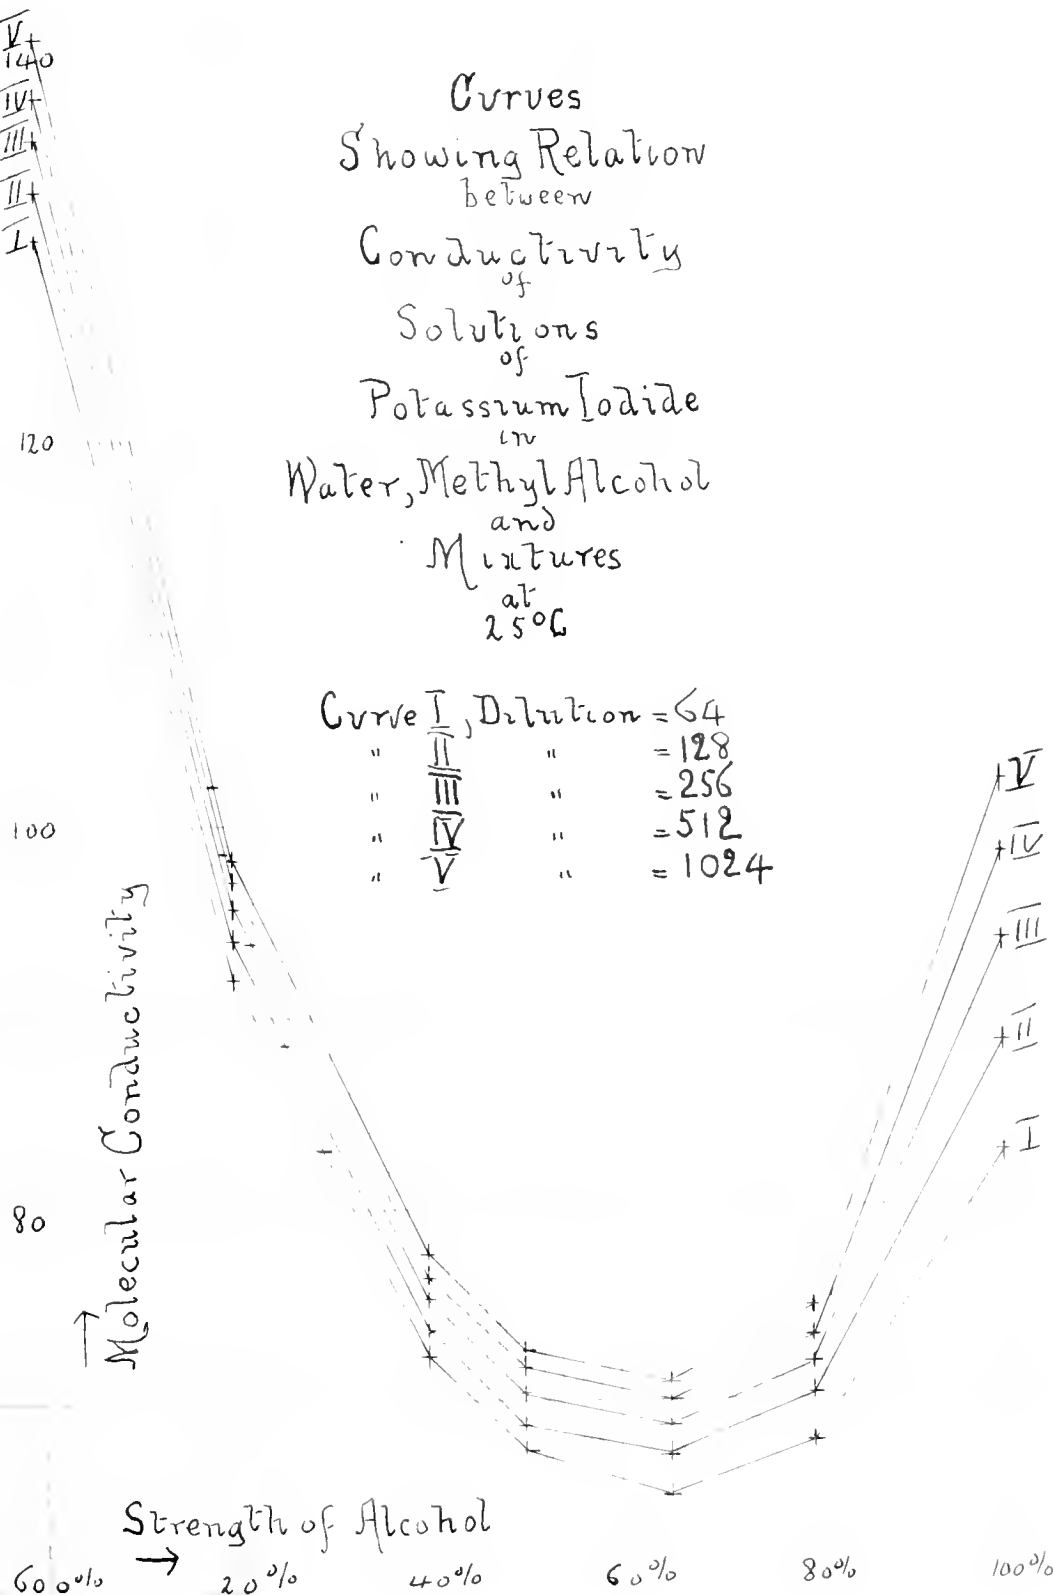 V
140
IV
III
II
I
Curves
Showing Relation
between
Conductivity
of
Solutions
of
Potassium Iodide
in
Water, Methyl Alcohol
and
Mixtures
at
25°C
120
Curve I, Dilution = 64
" II " = 128
" III " = 256
" IV " = 512
" V " = 1024
100
80
Molecular Conductivity
V
IV
III
II
I
Strength of Alcohol
60 0% 20% 40% 60% 80% 100%